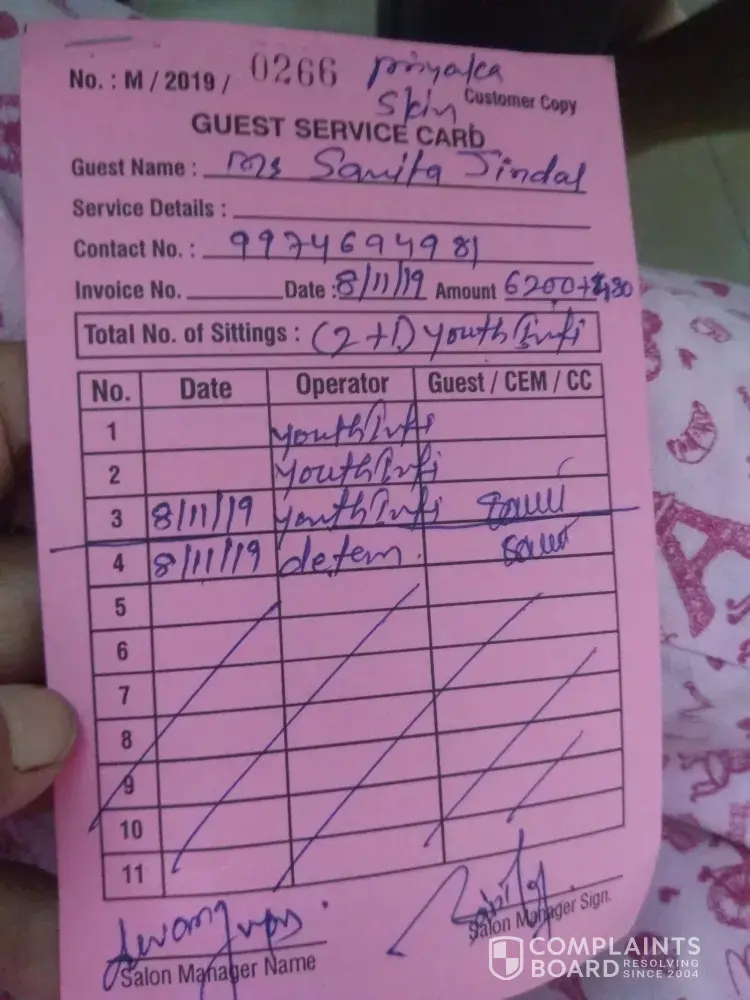 No. : M / 2019 / 0266
Skin
Customer Copy
GUEST SERVICE CARD
Guest Name : Ms Jindal
Service Details :
Contact No. : 9974694981
Invoice No. Date : 8/11/19 Amount 6200+
Total No. of Sittings : (2+1) youth Infi
No. Date Operator Guest / CEM / CC
1 youth Infi
2 youth Infi
3 8/11/19 youth Infi
4 8/11/19 detem
5
6
7
8
9
10
11
Salon Manager Name
Salon Manager Sign.
COMPLAINTS
BOARD RESOLVING
SINCE 2004